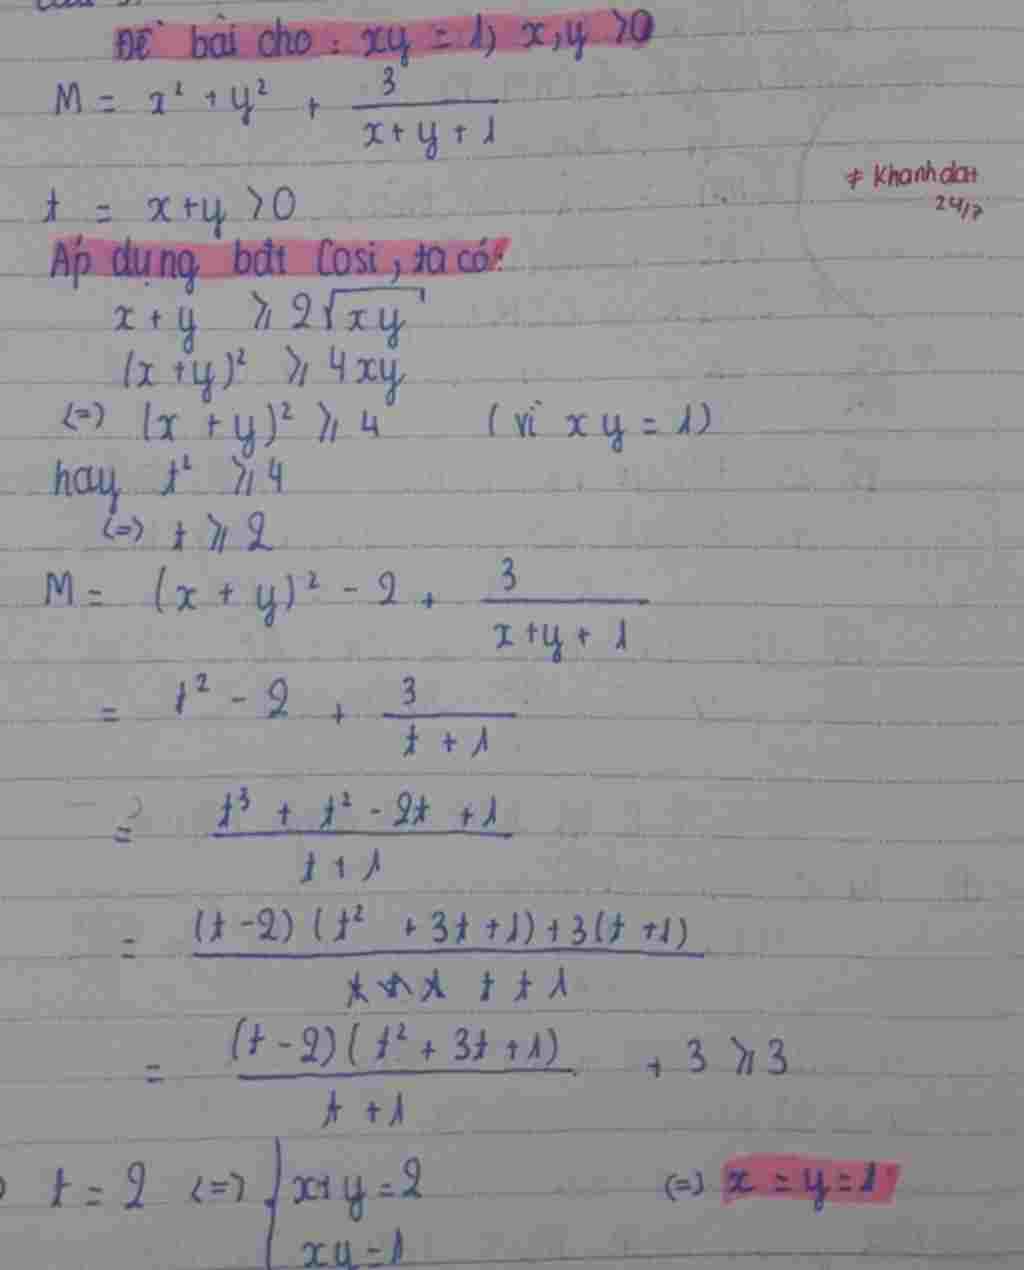 Đề bài cho : xy = 1; x,y >0
M = x² + y² + 3/(x + y + 1)
≠ Khanhdat
24/7
t = x+y >0
Áp dụng bđt Cosi, ta có:
x + y ⩾ 2√xy
(x + y)² ⩾ 4xy
<=> (x + y)² ⩾ 4 (vì xy = 1)
hay t² ⩾ 4
<=> t ⩾ 2
M = (x + y)² - 2 + 3/(x+y + 1)
= t² - 2 + 3/(t + 1)
= (t³ + t² - 2t + 1)/(t + 1)
= ((t-2)(t² + 3t +1) + 3(t +1))/(t + 1)
= (t-2)(t² + 3t +1)/(t +1) + 3 ⩾ 3
t = 2 <=> { x+y = 2 <=> x = y = 1
xy = 1